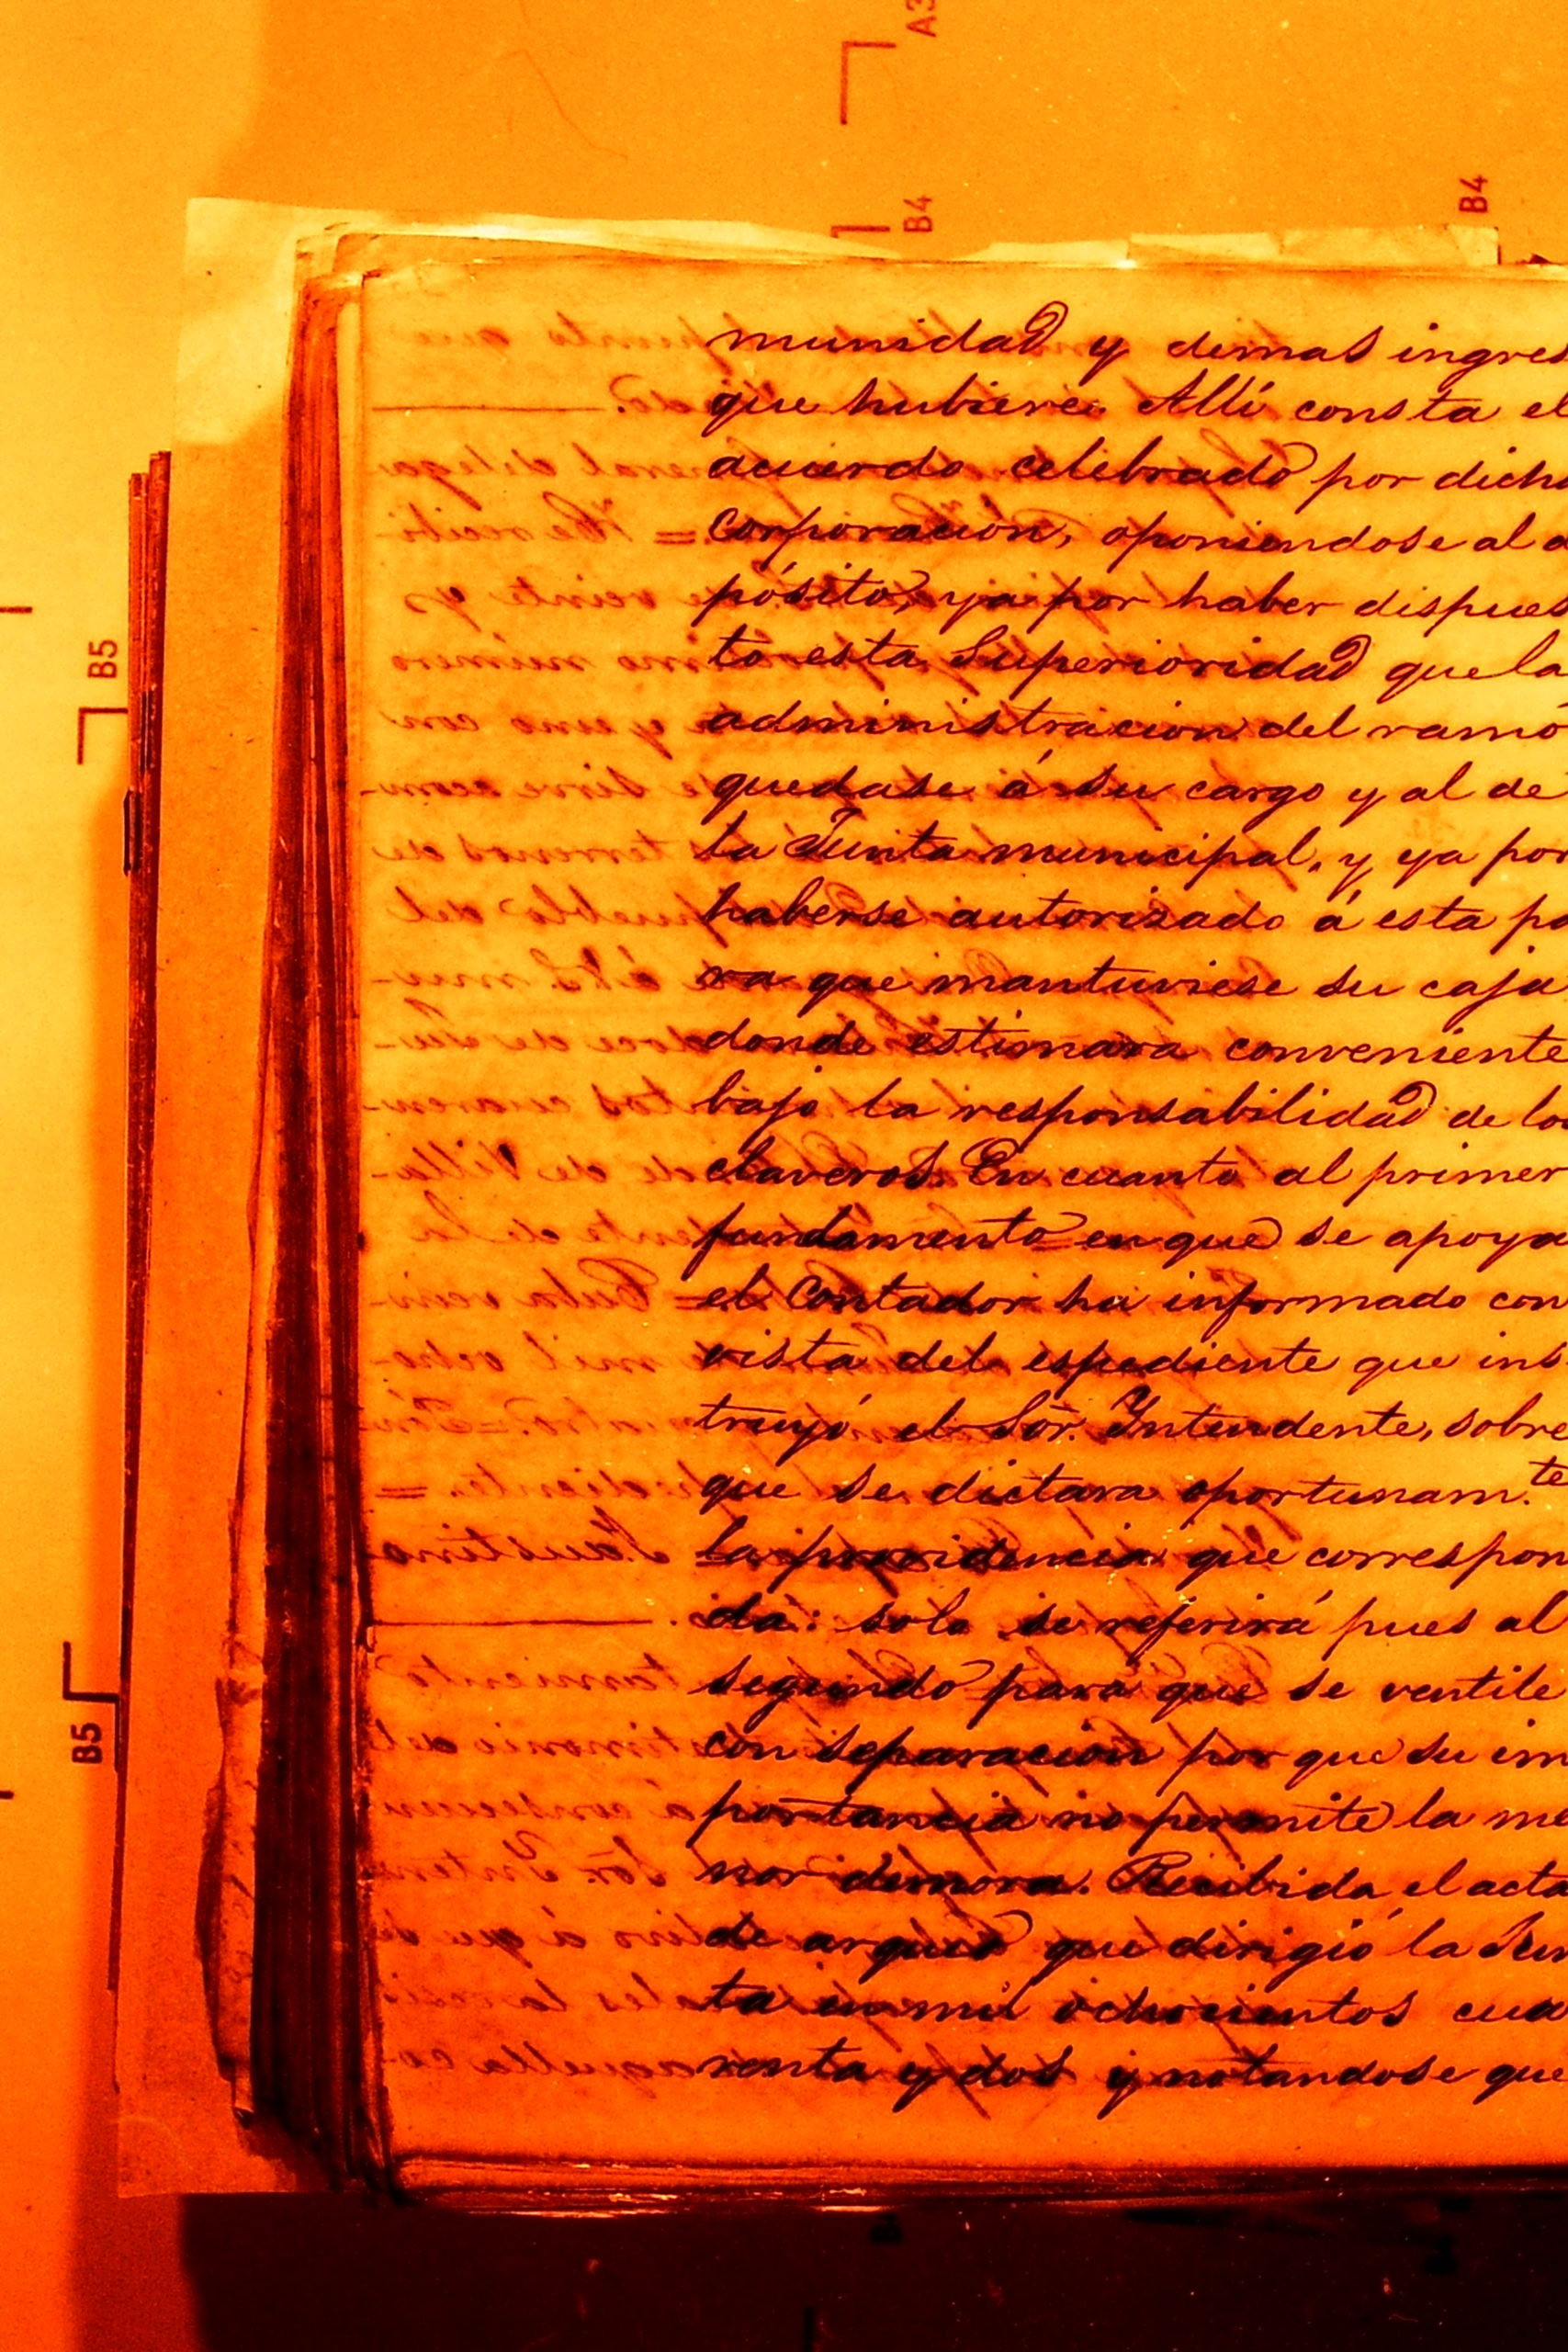 A3
B4
B4
munidad y demas ingres
que hubiere. Allí consta el
acuerdo celebrado por dicha
corporacion, oponiendose al a
pósito, ya por haber dispues
to esta Superioridad que la
administracion del ramo
quedase á su cargo y al de
la Junta municipal, y ya por
haberse autorizado á esta pa
ra que mantuviese su caja
donde estimara conveniente
bajo la responsabilidad de los
claveros. En cuanto al primer
fundamento en que se apoya
el Contador ha informado con
vista del espediente que ins
truyó el Sōr. Intendente, sobre
que se dictara oportunam.te
la providencia que correspon
da: solo se referirá pues al
segundo para que se ventile
con separacion por que su im
portancia no permite la me
nor demora. Recibida el acta
de arqueo que dirigió la Jun
ta en mil ochocientos cua
renta y dos y notandose que
B5
B5